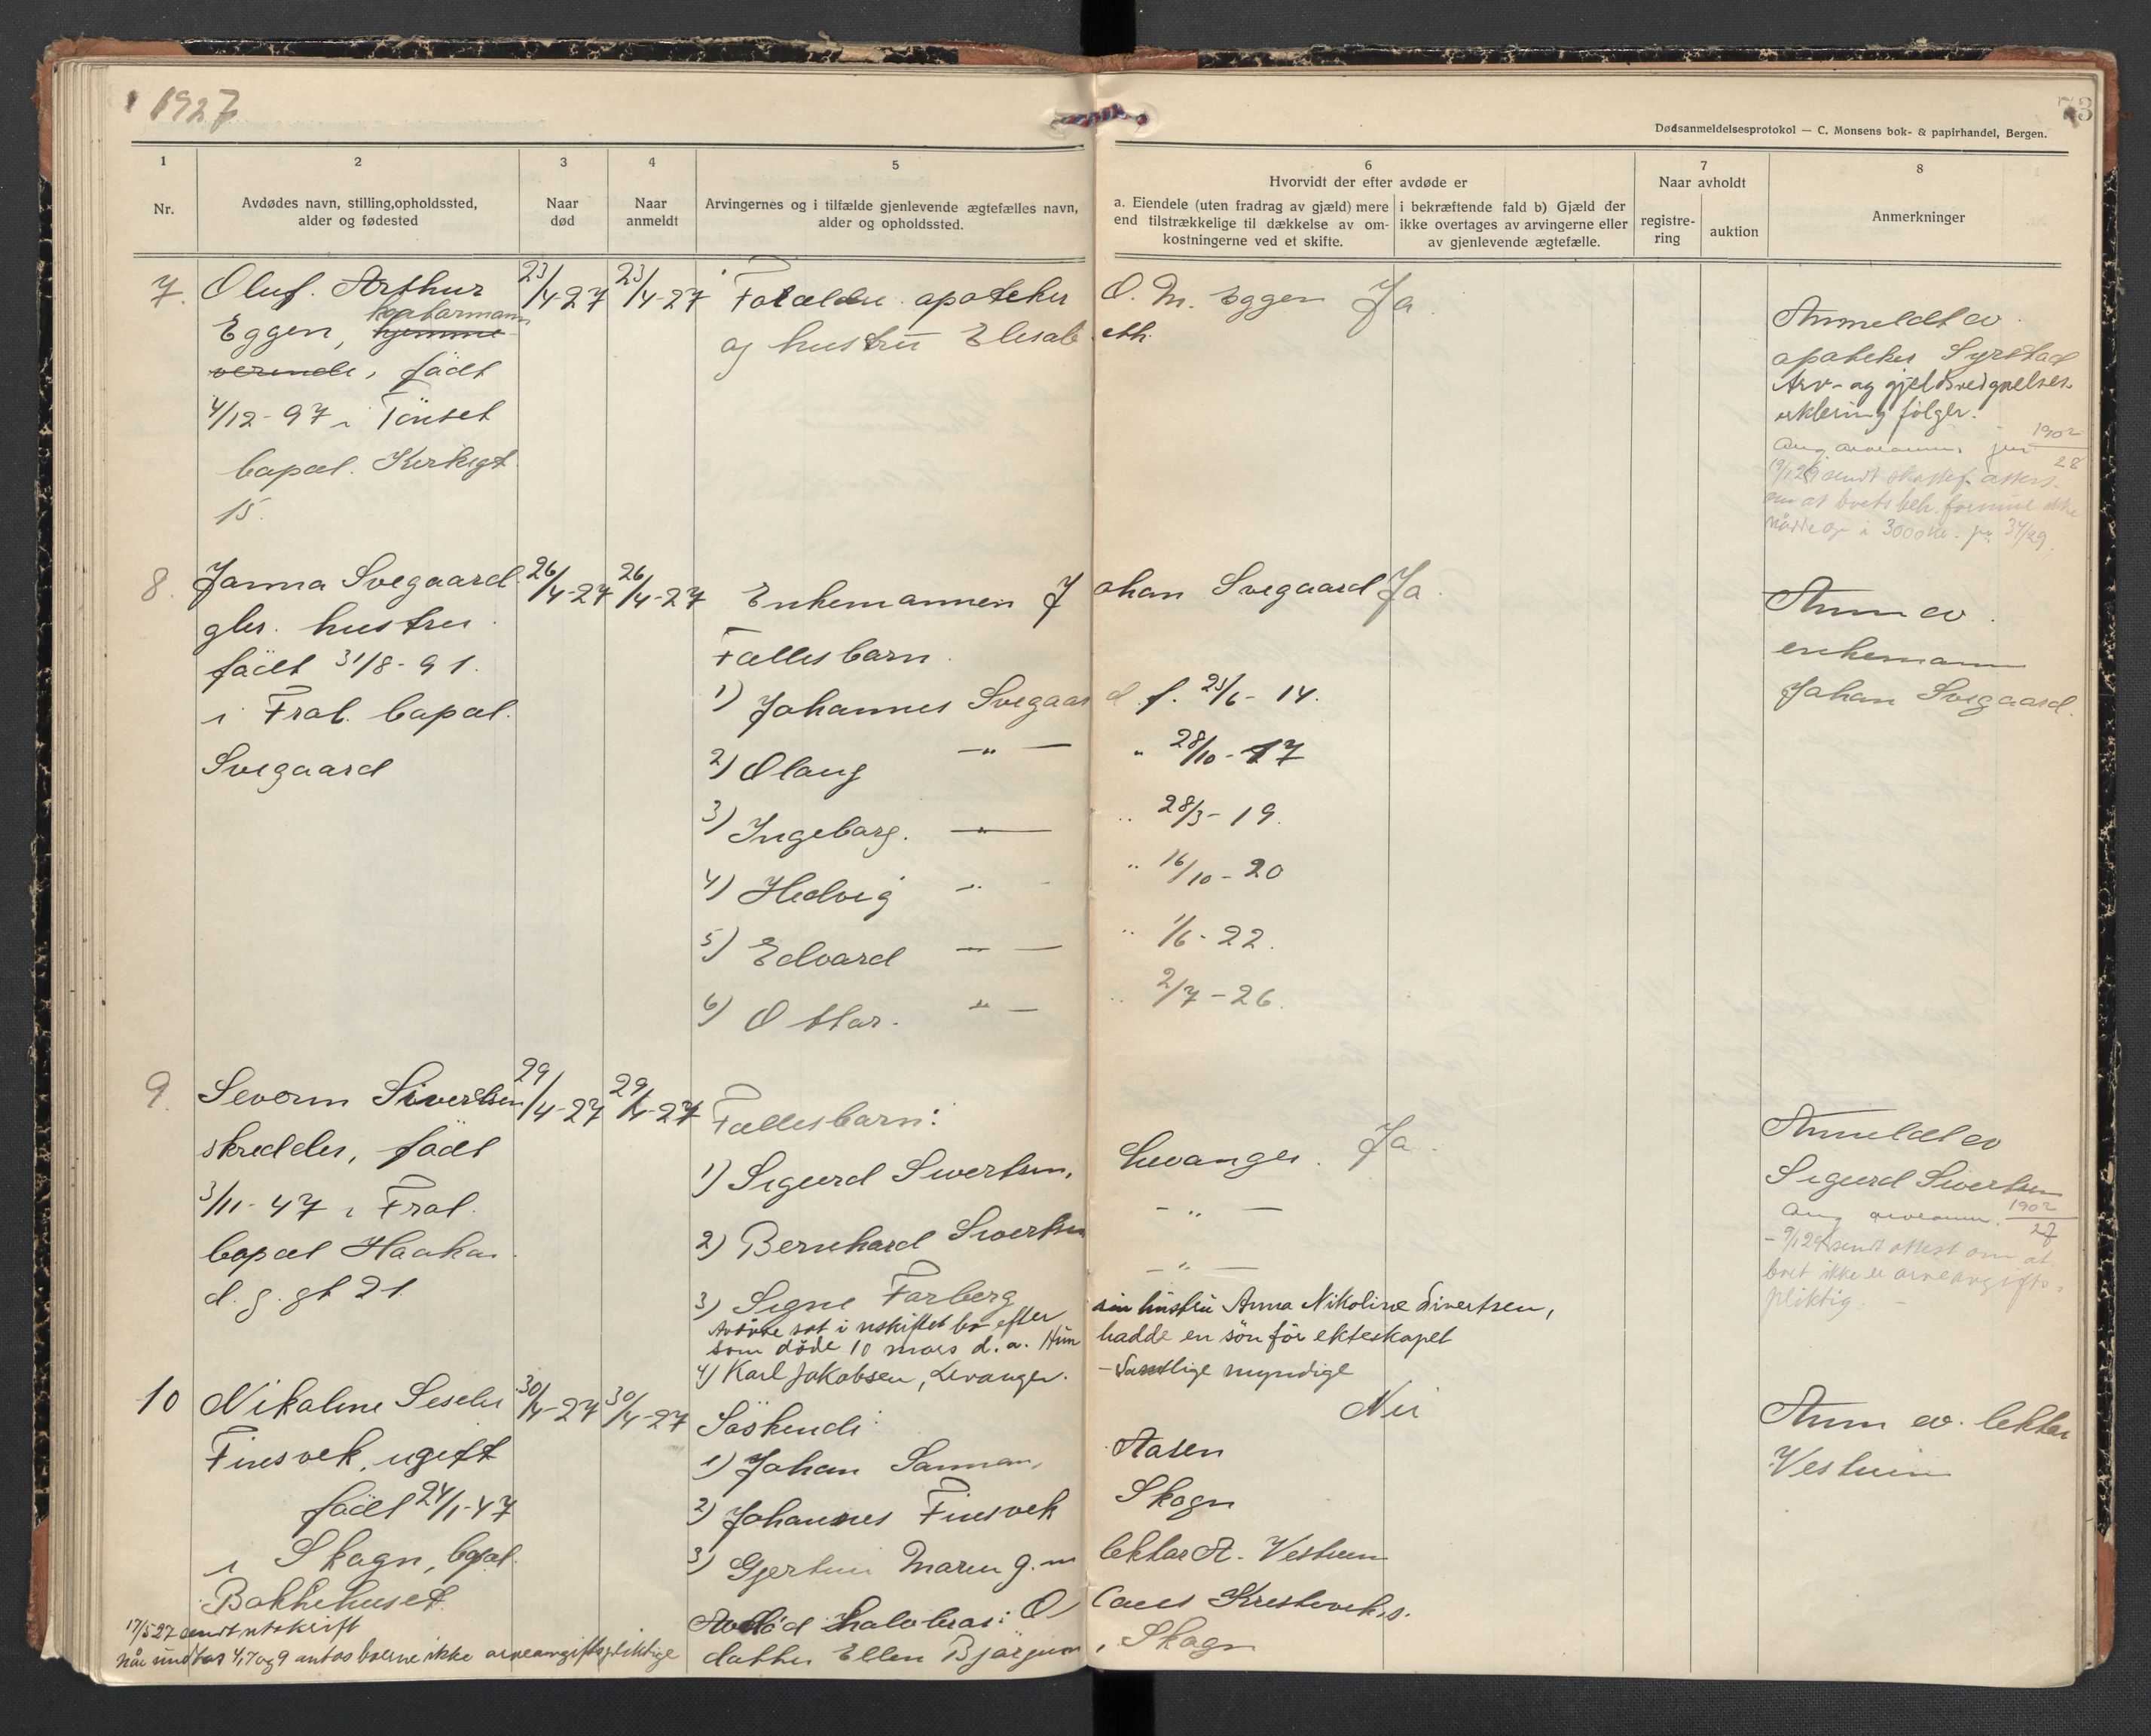 1927
73
Dødsanmeldelsesprotokol — C. Monsens bok- & papirhandel, Bergen.
1 2 3 4 5 6 7 8
Nr.
Avdødes navn, stilling,opholdssted,
alder og fødested
Naar
død
Naar
anmeldt
Arvingernes og i tilfælde gjenlevende ægtefælles navn,
alder og opholdssted.
Hvorvidt der efter avdøde er
a. Eiendele (uten fradrag av gjæld) mere
end tilstrækkelige til dækkelse av om-
kostningerne ved et skifte.
i bekræftende fald b) Gjæld der
ikke overtages av arvingerne eller
av gjenlevende ægtefælle.
Naar avholdt
registre-
ring
auktion
Anmerkninger
7. Oluf. Arthur
Eggen, hjemme
verende, født
4/12-97 i Tönset
bopæl. Kirkegt
15.
23/4-27 23/4-27
Forældre apoteker O. M. Eggen Ja
og hustru Elisabeth.
Anmeldt av
apoteker Syrstad
Arv- og gjeldsvedgåelses-
erklering følger.
1902
28
8. Janna Svegaard
gbr. hustru
født 31/8-91.
i Frol. bopæl.
Svegaard
26/4-27 26/4-27
Enkemannen Johan Svegaard Ja
Fællesbarn.
1) Johannes Svegaard f. 25/6-14.
2) Olaug -"- " 28/10-17
3) Ingeborg. -"- " 28/3-19.
4) Hedvig " " 16/10-20
5) Edvard -"- " 1/6-22.
6) Ottar. "- " 2/7-26.
Anm av
enkemann
Johan Svegaard.
9. Severin Sivertsen
skredder, født
3/11-47 i Frol.
bopæl Haakon
d. g. gt 21
29/4-27 29/4-27
Fællesbarn:
1) Sigurd Sivertsen, Levanger. Ja
2) Bernhard Sivertsen -"-
3) Signe Forberg -"-
Avdøde sat i uskiftet bo efter sin hustru Anna Nikoline Sivertsen,
som døde 10 mars d.a. Hun hadde en sön för ekteskapet
4) Karl Jakobsen, Levanger. - Samtlige myndige
Anmeldt av
Sigurd Sivertsen
1902
27
sendt attest om at
boet ikke er arveavgifts-
pliktig
10 Nikoline
Finsvek, ugift
født 24/1-47
i Skogn, bopæl.
Bakkehuset.
30/4-27 30/4-27
Söskende:
Nei
1) Johan Aasen
2) Johannes Finsvek Skogn
3) Maren g. m lektor A. Vestrum
Avdöd halvbror:
datter Ellen , Skogn
Anm av. lektor
Vestrum
17/5 27 sendt utskrift
når undtas 4, 7 og 9 antas boerne ikke arveavgiftspliktige